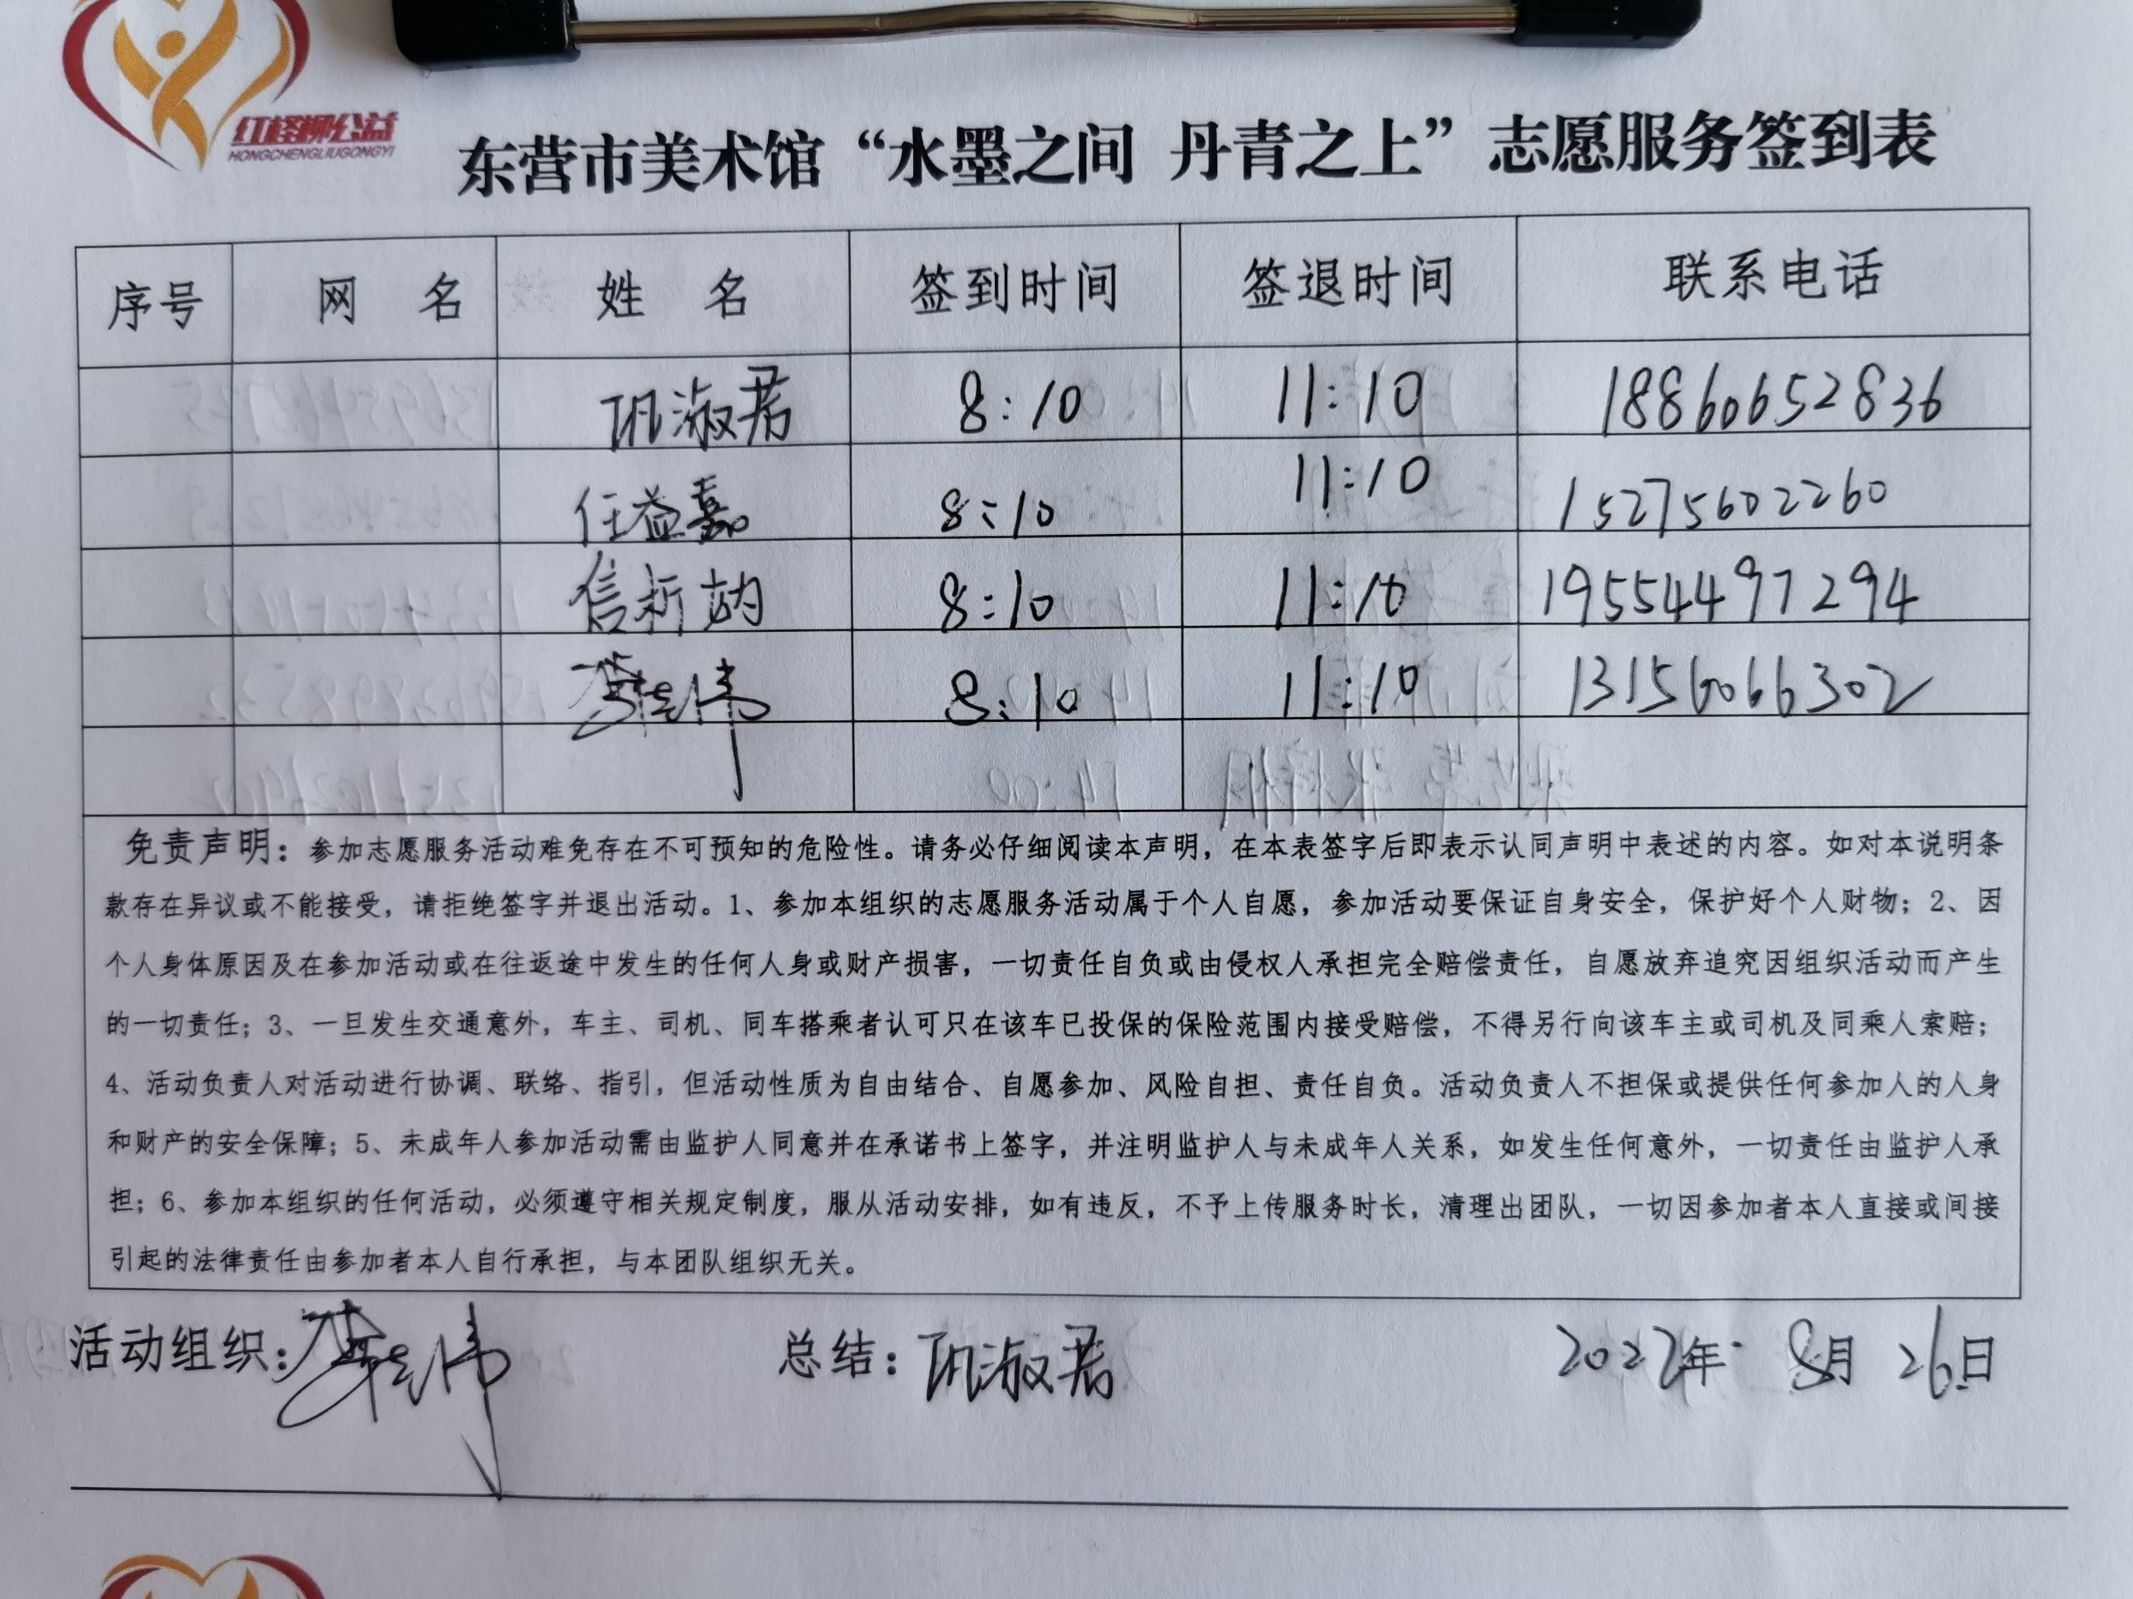 红柽柳公益
HONGCHENGLIUGONGYI
东营市美术馆“水墨之间 丹青之上”志愿服务签到表
序号 网 名 姓 名 签到时间 签退时间 联系电话
巩淑君 8:10 11:10 18860652836
任益嘉 8:10 11:10 15275602260
信析 8:10 11:10 19554497294
李 伟 8:10 11:10 13156066302
免责声明：参加志愿服务活动难免存在不可预知的危险性。请务必仔细阅读本声明，在本表签字后即表示认同声明中表述的内容。如对本说明条
款存在异议或不能接受，请拒绝签字并退出活动。1、参加本组织的志愿服务活动属于个人自愿，参加活动要保证自身安全，保护好个人财物；2、因
个人身体原因及在参加活动或在往返途中发生的任何人身或财产损害，一切责任自负或由侵权人承担完全赔偿责任，自愿放弃追究因组织活动而产生
的一切责任；3、一旦发生交通意外，车主、司机、同车搭乘者认可只在该车已投保的保险范围内接受赔偿，不得另行向该车主或司机及同乘人索赔；
4、活动负责人对活动进行协调、联络、指引，但活动性质为自由结合、自愿参加、风险自担、责任自负。活动负责人不担保或提供任何参加人的人身
和财产的安全保障；5、未成年人参加活动需由监护人同意并在承诺书上签字，并注明监护人与未成年人关系，如发生任何意外，一切责任由监护人承
担；6、参加本组织的任何活动，必须遵守相关规定制度，服从活动安排，如有违反，不予上传服务时长，清理出团队，一切因参加者本人直接或间接
引起的法律责任由参加者本人自行承担，与本团队组织无关。
活动组织：李 伟 总结：巩淑君 2022年 8月 26日